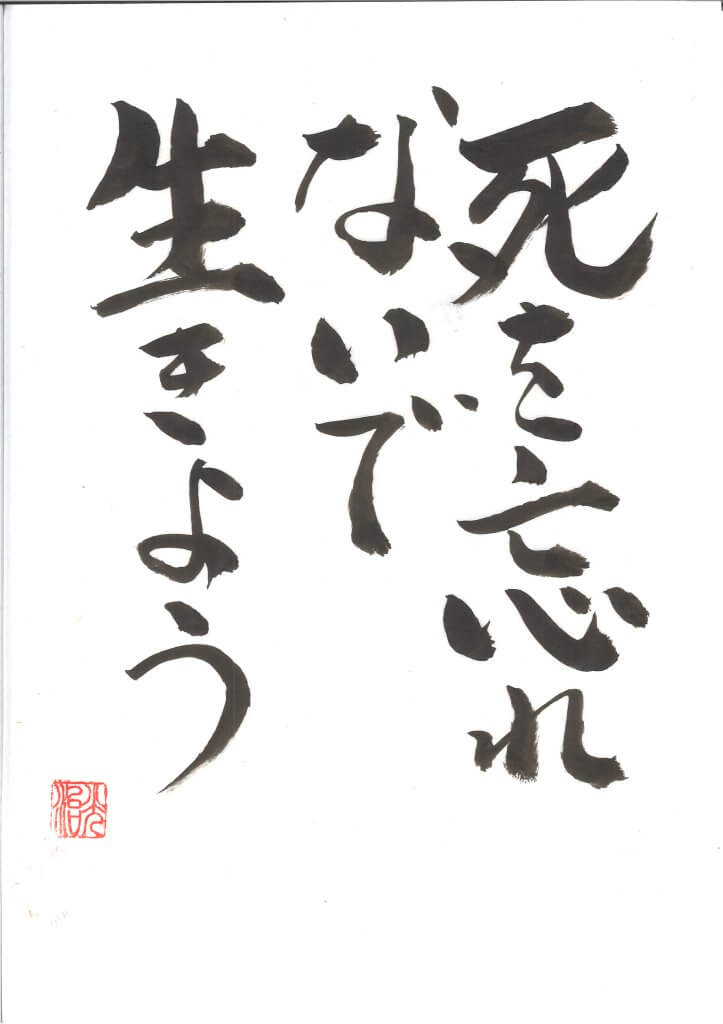 死を忘れ
ないで
生きよう